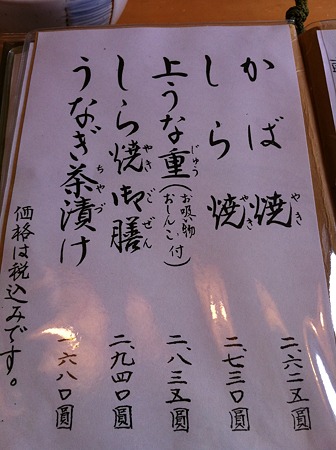 かば焼 二、六二五圓
しら焼 二、七三〇圓
上うな重(お吸い物 おしんこ 付) 二、八三五圓
しら焼御膳 二、九四〇圓
うなぎ茶漬け 一、六八〇圓
価格は税込みです。
やき
やき
じゅう
やき ごぜん
ちゃづ